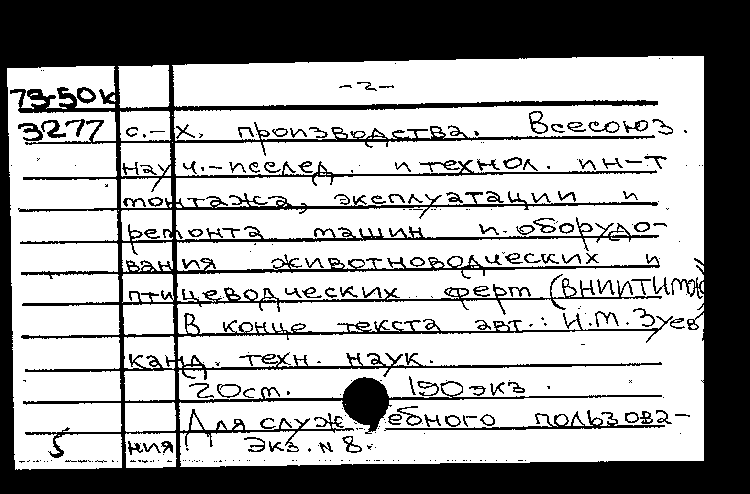 73-50к
-2-
3277 с.-х. производства. Всесоюз.
науч.-исслед. и технол. ин-т
монтажа, эксплуатации и
ремонта машин и оборудо-
вания животноводческих и
птицеводческих ферм (ВНИИТИМЖ)
В конце текста авт.: И.М. Зуев,
канд. техн. наук.
20см. 190экз.
Для служебного пользова-
5 ния. Экз. N 8.